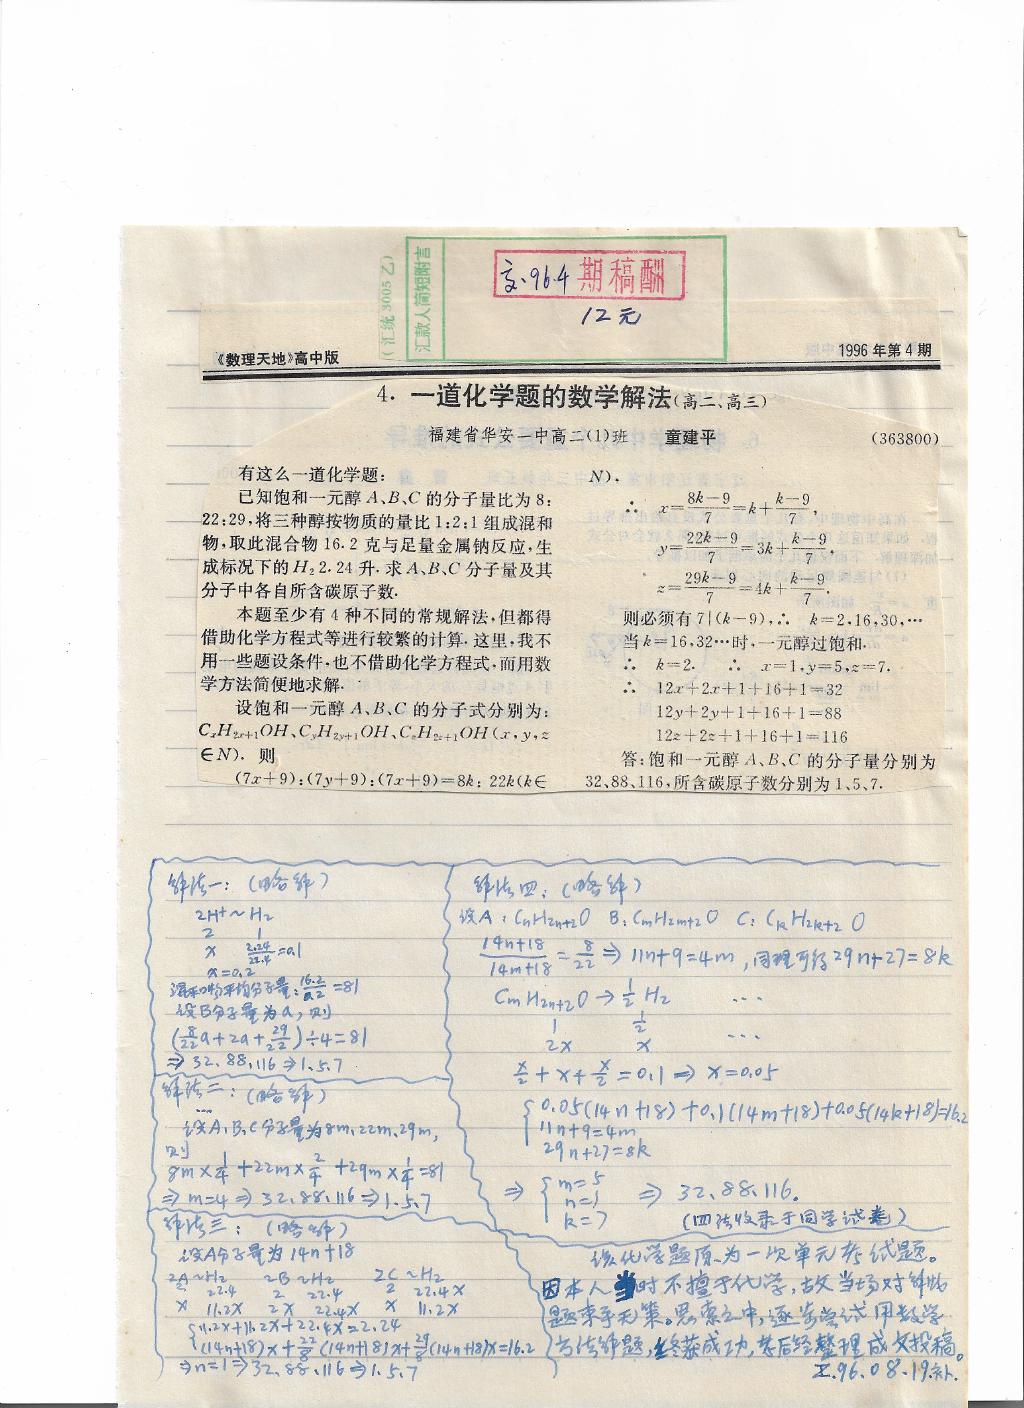 (汇统3005乙)
汇款人简短附言
交.96.4 期稿酬
12元
《数理天地》高中版
1996年第4期
4. 一道化学题的数学解法(高二、高三)
福建省华安一中高二(1)班 童建平 (363800)
有这么一道化学题:
已知饱和一元醇A、B、C的分子量比为8:
22:29,将三种醇按物质的量比1:2:1组成混和
物,取此混合物16.2克与足量金属钠反应,生
成标况下的H₂2.24升.求A、B、C分子量及其
分子中各自所含碳原子数.
本题至少有4种不同的常规解法,但都得
借助化学方程式等进行较繁的计算.这里,我不
用一些题设条件,也不借助化学方程式,而用数
学方法简便地求解.
设饱和一元醇A、B、C的分子式分别为:
CₓH₂ₓ₊₁OH、CyH2y+1OH、CzH2z+1OH(x,y,z
∈N). 则
(7x+9):(7y+9):(7x+9)=8k: 22k(k∈
N).
∴ x=(8k−9)/7=k+(k−9)/7,
y=(22k−9)/7=3k+(k−9)/7,
z=(29k−9)/7=4k+(k−9)/7.
则必须有7|(k−9),∴ k=2,16,30,…
当k=16,32…时,一元醇过饱和.
∴ k=2. ∴ x=1,y=5,z=7.
∴ 12x+2x+1+16+1=32
12y+2y+1+16+1=88
12z+2z+1+16+1=116
答:饱和一元醇A、B、C的分子量分别为
32、88、116,所含碳原子数分别为1、5、7.
解法一:(略解)
2H⁺~H₂
2 1
x 2.24/22.4=0.1
x=0.2
混和物平均分子量:16.2/0.2=81
设B分子量为a,则
(8/22a+2a+29/22)÷4=81
⇒32、88、116⇒1、5、7
解法二:(略解)
设A、B、C分子量为8m、22m、29m,
则
8m×1/4+22m×2/4+29m×1/4=81
⇒m=4⇒32、88、116⇒1、5、7
解法三:(略解)
设A分子量为14n+18
2A~H₂ 2B~H₂ 2C~H₂
2 22.4 2 22.4 2 22.4x
x 11.2x 2x 22.4x x 11.2x
{11.2x+11.2x+22.4x=2.24
(14n+18)x+22/8(14n+18)x+29/8(14n+18)x=16.2
⇒n=1⇒32、88、116⇒1、5、7
解法四:(略解)
设A:CnH2n+2O B:CmH2m+2O C:CkH2k+2O
(14n+18)/(14m+18)=8/22⇒11n+9=4m,同理可得29n+27=8k
CmH2n+2O→1/2H₂ …
1 1/2
2x x …
x/2+x+x/2=0.1⇒x=0.05
{0.05(14n+18)+0.1(14m+18)+0.05(14k+18)=16.2
11n+9=4m
29n+27=8k
⇒{m=5
n=1 ⇒32、88、116.
k=7
(四法收录于同学试卷)
该化学题原为一次单元考试题。
因本人当时不擅于化学,故当场对解此
题束手无策。思索之中,逐步尝试用数学
方法解题,终获成功,考后经整理成文投稿。
Z.96.08.19.补.